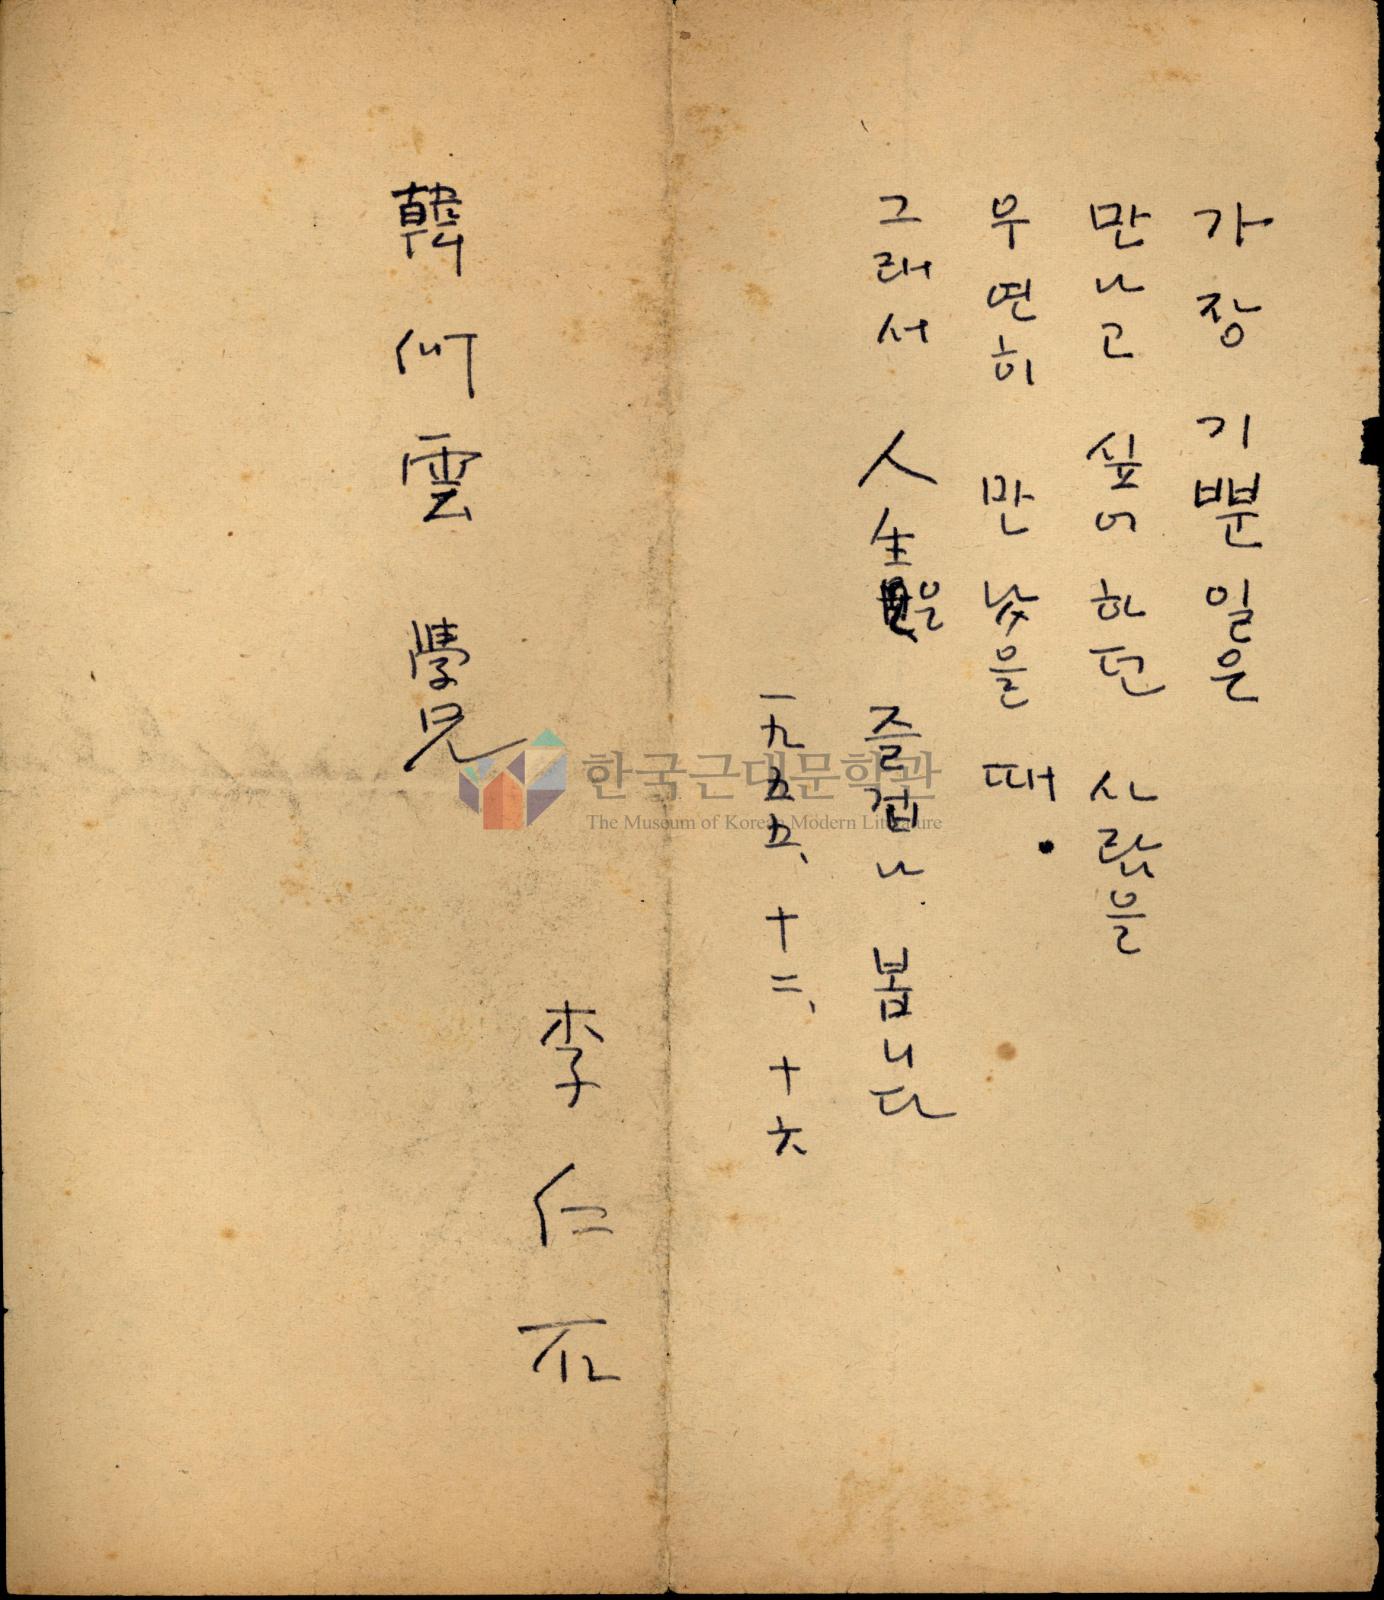 가장 기뿐 일은
만나고 싶어 하던 사람을
우연히 만낫을 때.
그래서 人生은 즐겁나 봅니다
一九五五、十二、十六
李仁石
韓何雲 學兄
한국근대문학관
The Museum of Korean Modern Literature